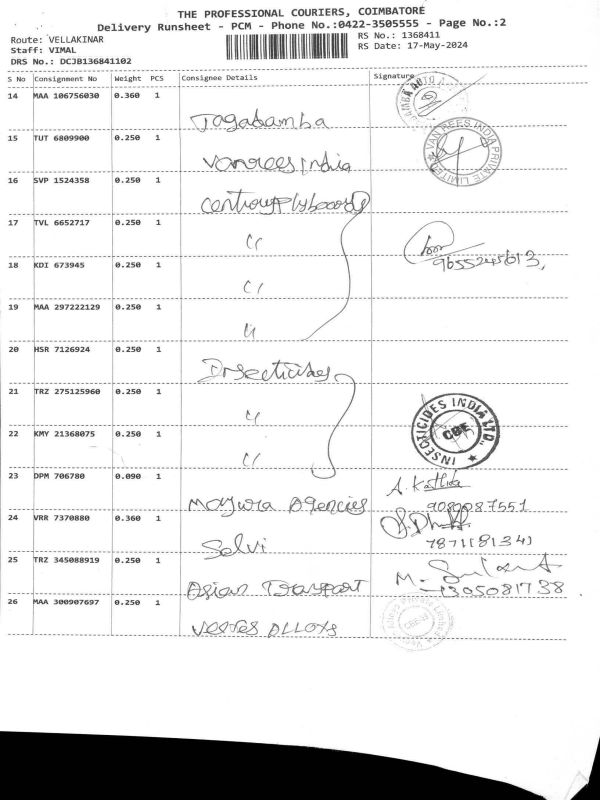 THE PROFESSIONAL COURIERS, COIMBATORE
Delivery Runsheet - PCM - Phone No.:0422-3505555 - Page No.:2
Route: VELLAKINAR
RS No.: 1368411
Staff: VIMAL
RS Date: 17-May-2024
DRS No.: DCJB136841102
S No Consignment No Weight PCS Consignee Details Signature
14 MAA 106756030 0.360 1
Jagadamba
15 TUT 6809900 0.250 1
Vanrees India
VAN REES INDIA PRIVATE LIMITED
16 SVP 1524358 0.250 1
Century Plyboards
17 TVL 6652717 0.250 1
"
9655245613,
18 KDI 673945 0.250 1
"
19 MAA 297222129 0.250 1
"
20 HSR 7126924 0.250 1
Insecticides
21 TRZ 275125960 0.250 1
"
INSECTICIDES INDIA LTD.,
CBE
22 KMY 21368075 0.250 1
"
23 DPM 706780 0.090 1
A. Kathida
Mayura Agencies
9080087551
24 VRR 7370880 0.360 1
Selvi
25 TRZ 345088919 0.250 1
Asian Transport
26 MAA 300907697 0.250 1
Veeyes Alloys